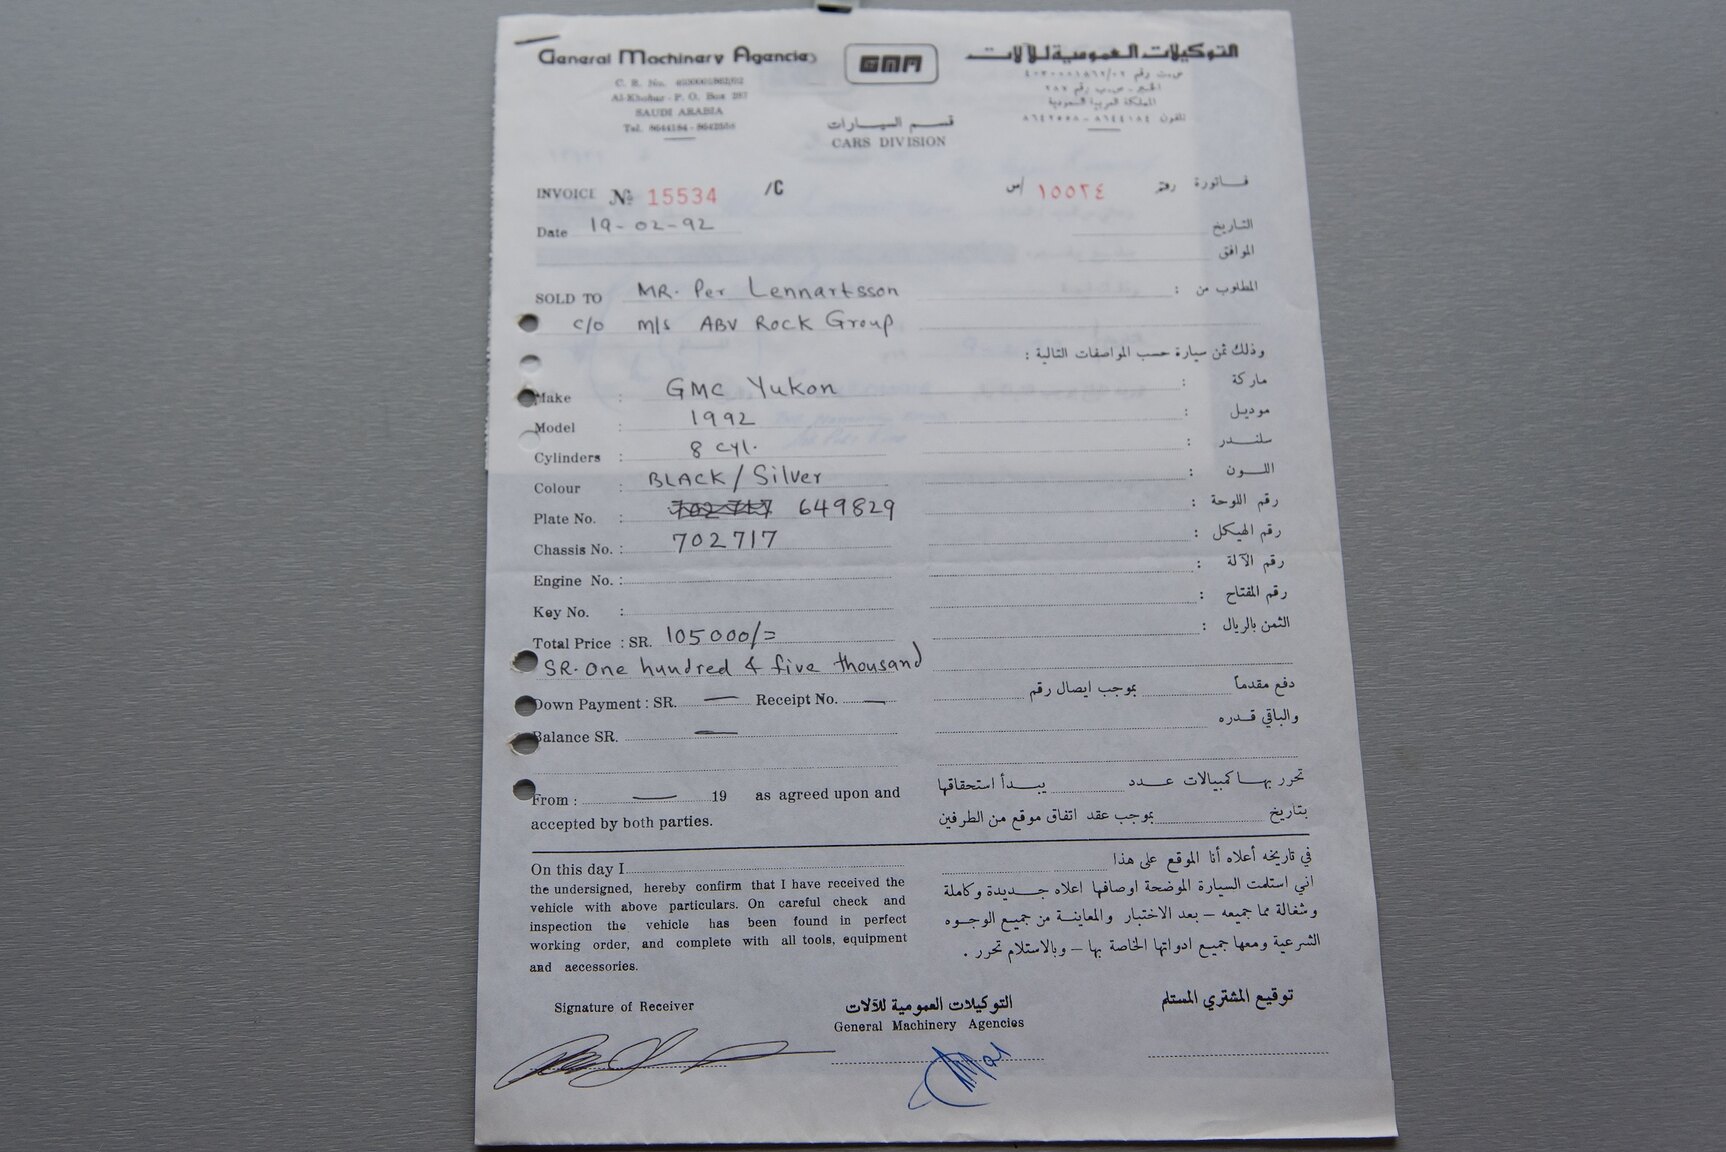 General Machinery Agencies
GMA
التوكيلات العمومية للآلات
C. R. No.
س.ت رقم
Al-Khobar - P. O. Box 287
الخبر - ص.ب رقم ٢٨٧
SAUDI ARABIA
المملكة العربية السعودية
Tel. 8644184 -
تلفون ٨٦٤٤١٨٤ -
قسم السيارات
CARS DIVISION
INVOICE № 15534 /C
فاتورة رقم ١٥٥٣٤ /س
Date 19-02-92
التاريخ
الموافق
SOLD TO MR. Per Lennartsson
المطلوب من :
c/o m/s ABV Rock Group
وذلك ثمن سيارة حسب المواصفات التالية :
Make : GMC Yukon
ماركة :
Model : 1992
موديل :
Cylinders : 8 cyl.
سلندر :
Colour : BLACK / Silver
اللون :
Plate No. : 702717 649829
رقم اللوحة :
Chassis No. : 702717
رقم الهيكل :
Engine No. :
رقم الآلة :
Key No. :
رقم المفتاح :
Total Price : SR. 105000/=
الثمن بالريال :
SR. One hundred & five thousand
Down Payment : SR. — Receipt No. —
دفع مقدماً بموجب ايصال رقم
Balance SR. —
والباقي قدره
From : — 19 as agreed upon and
تحرر بها كمبيالات عدد يبدأ استحقاقها
accepted by both parties.
بتاريخ بموجب عقد اتفاق موقع من الطرفين
On this day I
في تاريخه أعلاه أنا الموقع على هذا
the undersigned, hereby confirm that I have received the
vehicle with above particulars. On careful check and
inspection the vehicle has been found in perfect
working order, and complete with all tools, equipment
and accessories.
اني استلمت السيارة الموضحة اوصافها اعلاه جديدة وكاملة
وشغالة مما جميعه – بعد الاختبار والمعاينة من جميع الوجوه
الشرعية ومعها جميع ادواتها الخاصة بها – وبالاستلام تحرر .
Signature of Receiver
التوكيلات العمومية للآلات
General Machinery Agencies
توقيع المشتري المستلم